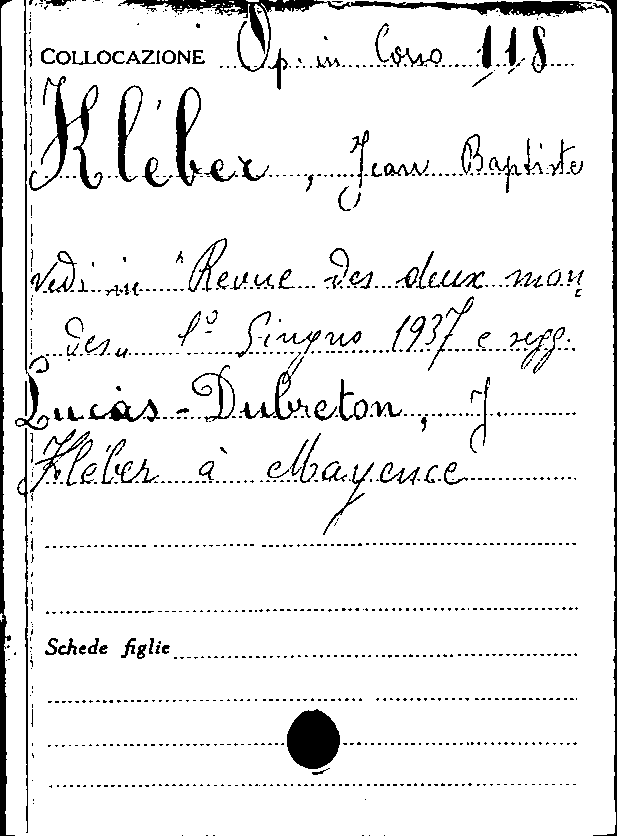 COLLOCAZIONE Op. in Corso 118
Kléber, Jean Baptiste
vedi in "Revue des deux mon
des„ 1º Giugno 1937 e segg.
Lucas-Dubreton, J.
Kléber à Mayence
Schede figlie